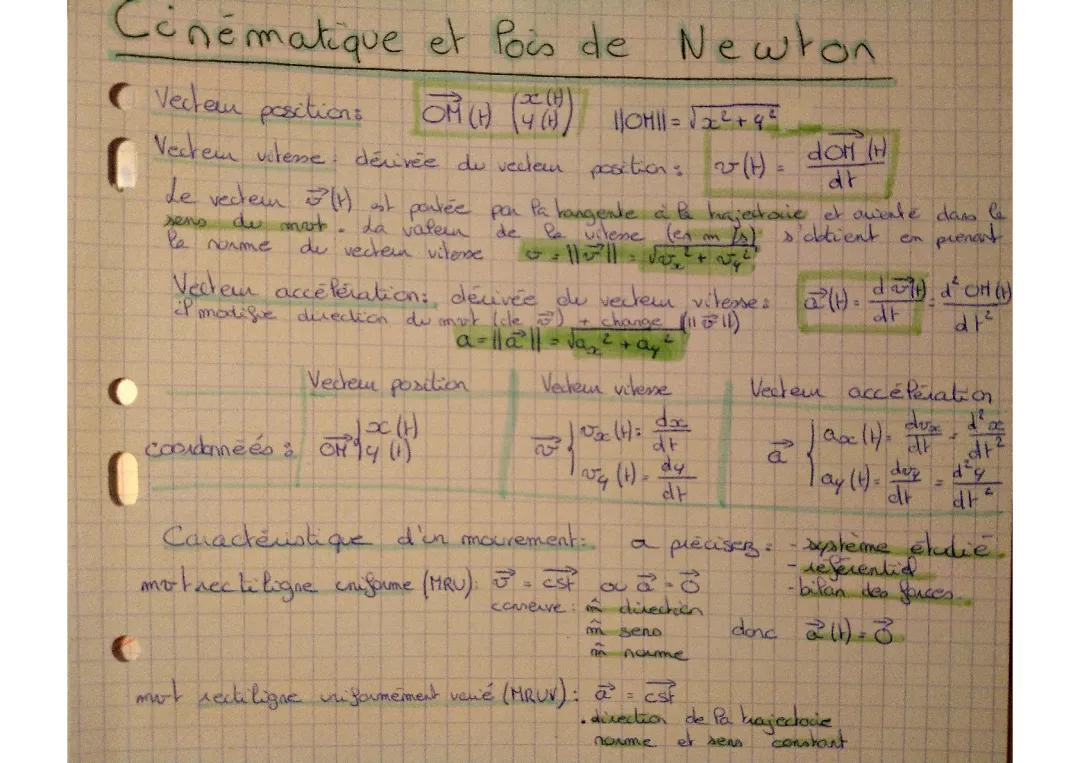 Cinématique et lois de Newton
Vecteur position: OM(t) (x(t) y(t)) ||OM|| = √x²+y²
Vecteur vitesse: dérivée du vecteur position: v(t) = dOM(t)/dt
Le vecteur v(t) est portée par la tangente à la trajectoire et orienté dans le
sens du mvt. La valeur de la vitesse (en m/s) s'obtient en prenant
la norme du vecteur vitesse v = ||v|| = √vx² + vy²
Vecteur accélération: dérivée du vecteur vitesse: a(t) = dv(t)/dt = d²OM(t)/dt²
il modifie direction du mvt (de v) + change (||v||)
a = ||a|| = √ax² + ay²
Vecteur position Vecteur vitesse Vecteur accélération
coordonnées: OM { x(t) y(t) v { vx(t) = dx/dt vy(t) = dy/dt a { ax(t) = dvx/dt = d²x/dt² ay(t) = dvy/dt = d²y/dt²
Caractéristique d'un mouvement: a précisez: - système étudié.
- référentiel
mvt rectiligne uniforme (MRU): v = cst ou a = 0 - bilan des forces.
conserve: m̂ direction
m̂ sens donc a(t) = 0
m̂ norme
mvt rectiligne uniformément varié (MRUV): a = cst
. direction de la trajectoire
norme et sens constant